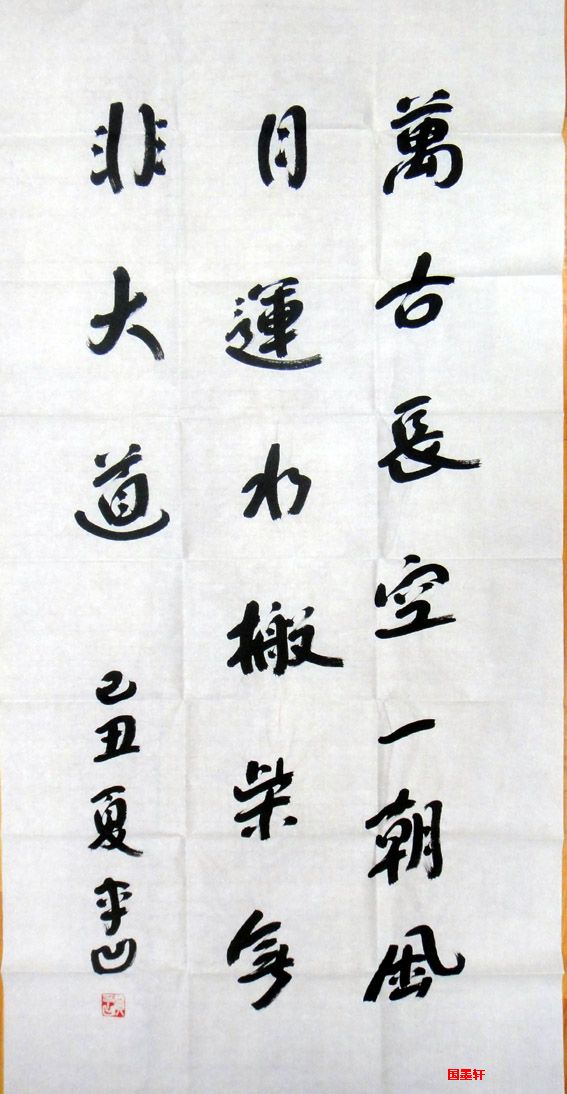 萬古長空一朝風
月運水搬柴無
非大道 己丑夏平凹
国墨轩